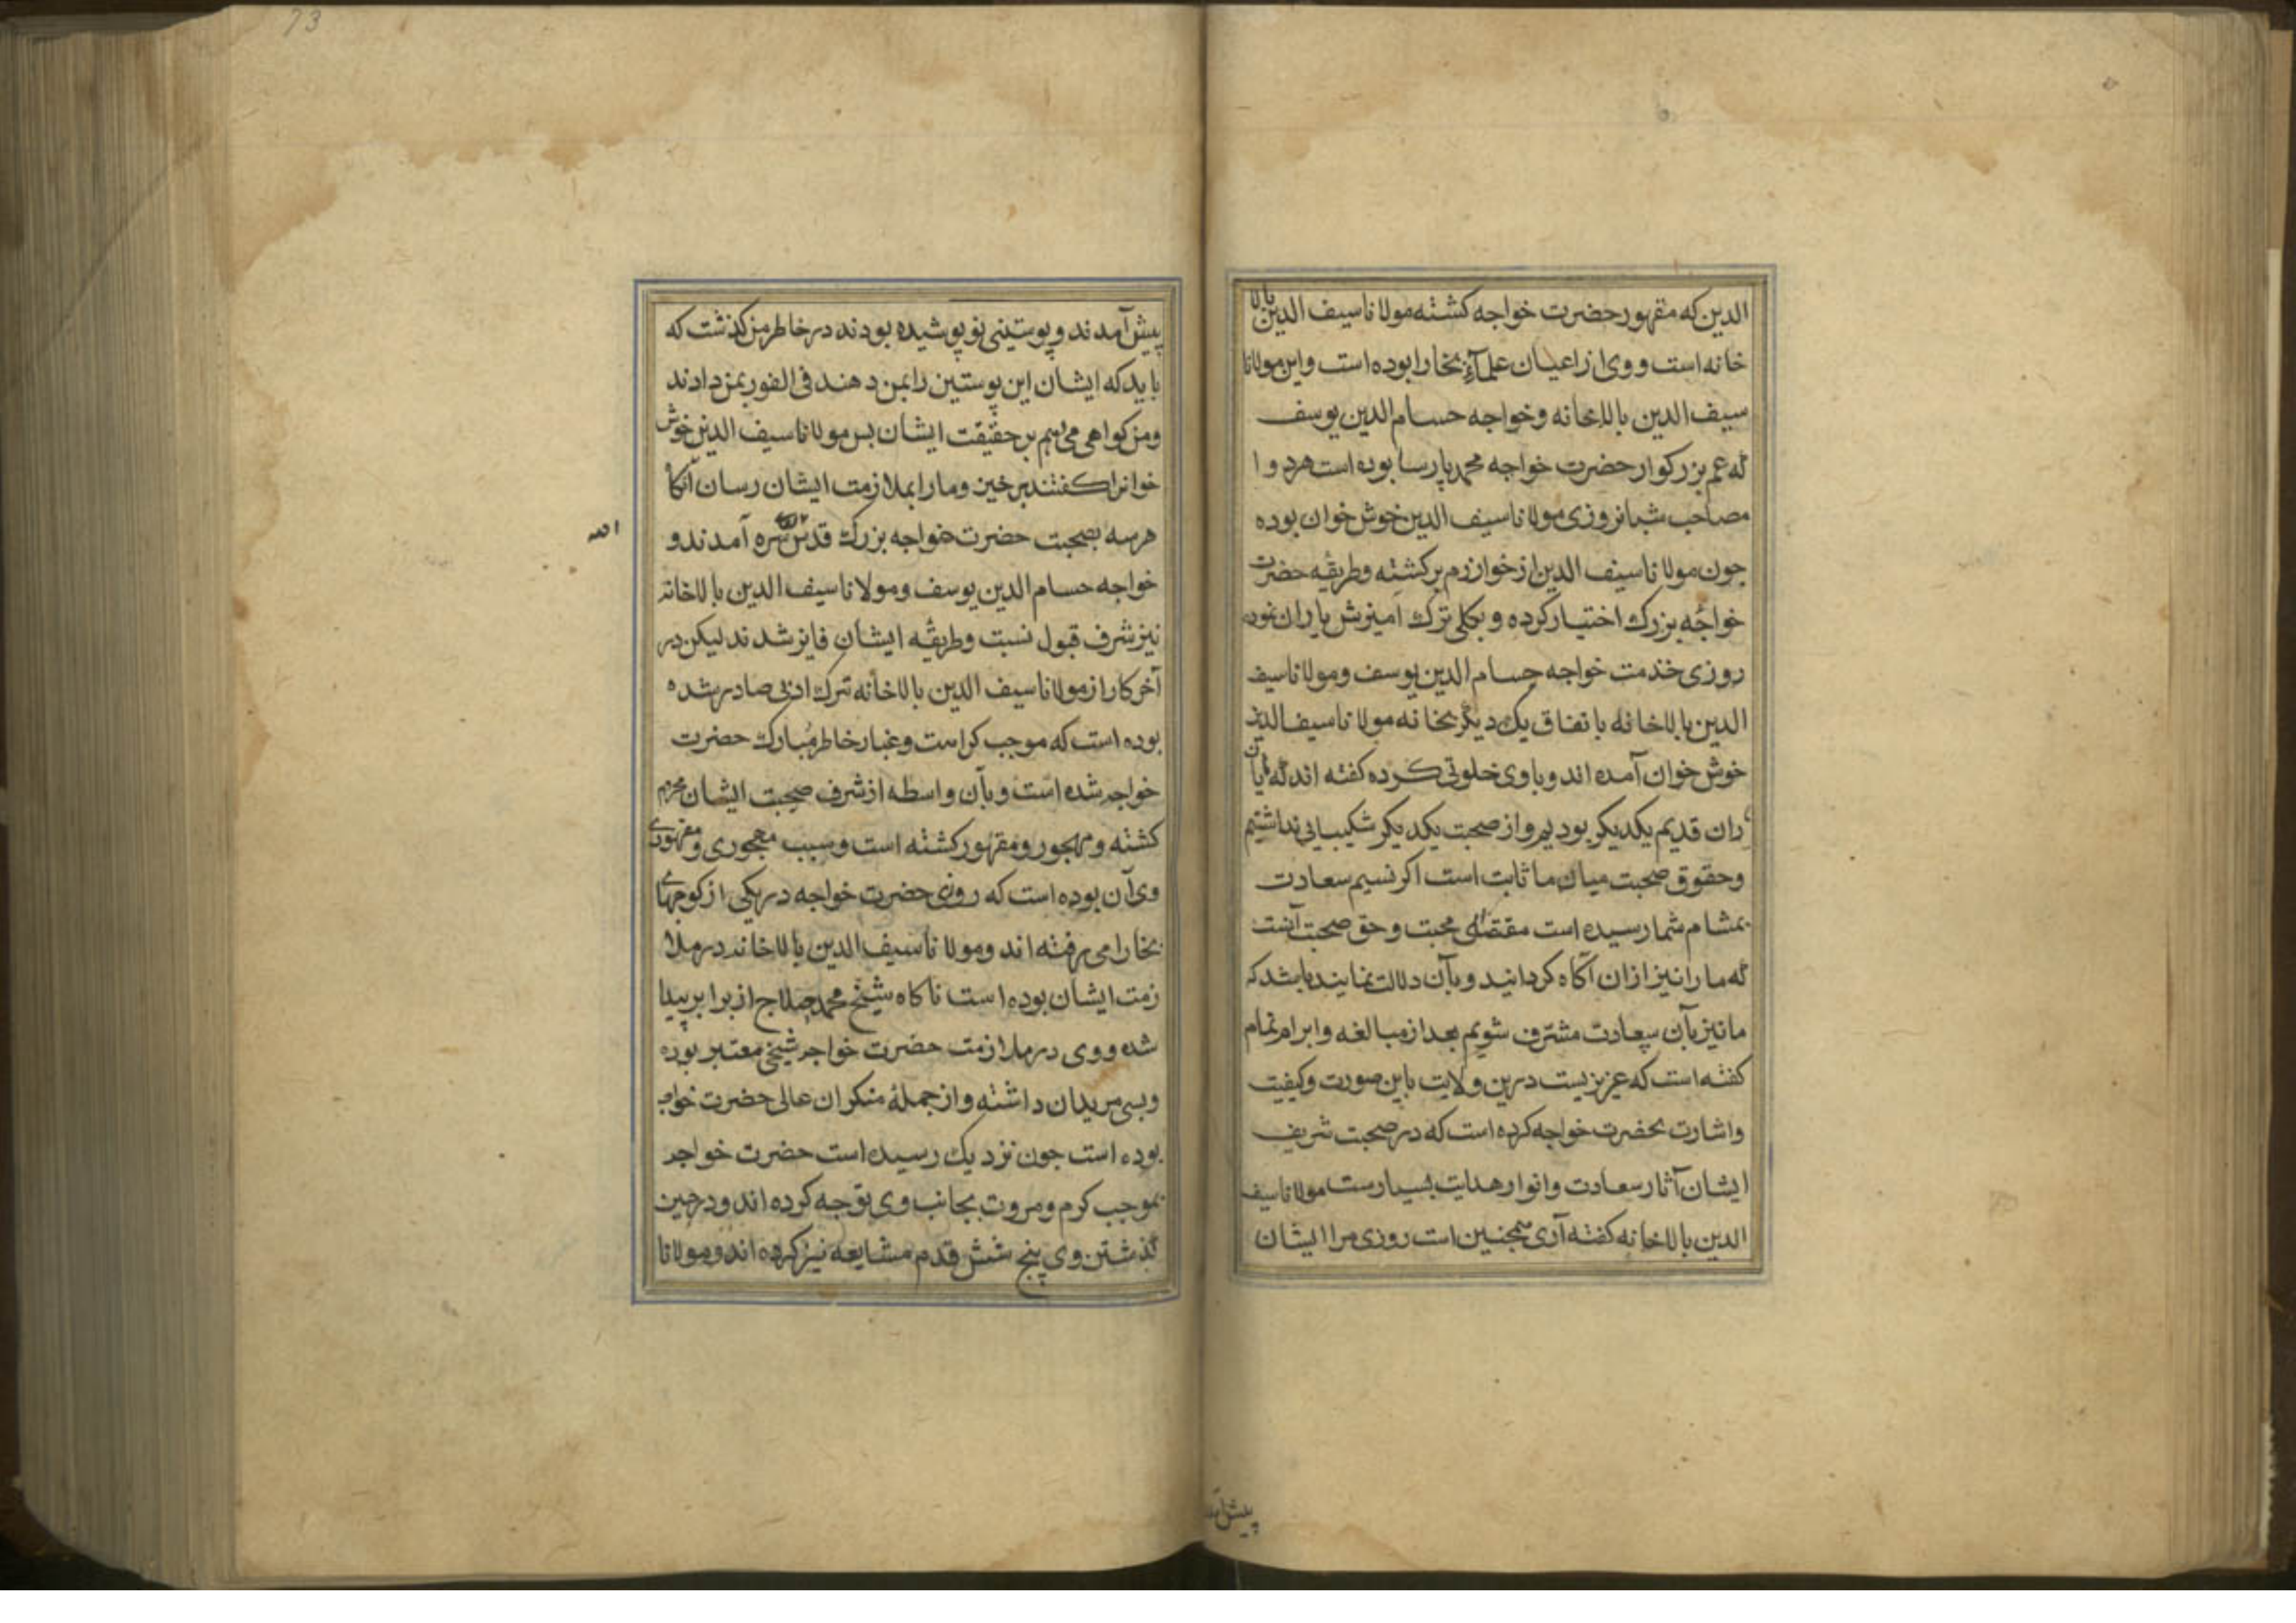 الدین که مقهور حضرت خواجه کشته مولانا سیف الدین بالا
خانه است و وی از اعیان علمآء بخارا بوده است و این مولانا
سیف الدین بالاخانه و خواجه حسام الدین یوسف
که عم بزرکوار حضرت خواجه محمد پارسا بوده است هر دو ا
مصاحب شبانروزی مولانا سیف الدین خوش خوان بوده
جون مولانا سیف الدین از خوارزم برکشته و طریقه حضرت
خواجه بزرک اختیار کرده و بکلی ترک امیزش یاران نموده
روزی خدمت خواجه حسام الدین یوسف و مولانا سیف
الدین بالاخانه باتفاق یک دیکر بخانه مولانا سیف الدین
خوش خوان آمده اند و با وی خلوتی کرده کفته اند که
ران قدیم یکدیکر بودیم و از صحبت یکدیکر شکیبایی نداشتیم
و حقوق صحبت میان ما ثابت است اکر نسیم سعادت
بمشام شما رسیده است مقتضای محبت و حق صحبت آنست
که ما را نیز ازان آکاه کردانید و بآن دلالت نمایند باشد که
ما نیز بآن سعادت مشترف شویم بعد از مبالغه و ابرام تمام
کفته است که عزیزیست درین ولایت باین صورت و کیفیت
و اشارت بحضرت خواجه کرده است که در صحبت شریف
ایشان آثار سعادت و انوار هدایت بسیارست مولانا سیف
الدین بالاخانه کفته آری همجنین است روزی مرا ایشان
پیش آمد
73
پیش آمدند و پوستینی نو پوشیده بودند در خاطر من کذشت که
باید که ایشان این پوستین را بمن دهند فی الفور بمن دادند
و من کواهی می دهم بر حقیقت ایشان بس مولانا سیف الدین خوش
خوانرا کفتند برخیز و ما را بملازمت ایشان رسان آنکا
هر سه بصحبت حضرت خواجه بزرک قدس سره آمدند و
الله
خواجه حسام الدین یوسف و مولانا سیف الدین بالاخانه
نیز شرف قبول نسبت و طریقه ایشان فایز شدند لیکن در
آخر کار از مولانا سیف الدین بالاخانه ترک ادبی صادر شده
بوده است که موجب کراهت و غبار خاطر مبارک حضرت
خواجه شده است و بآن واسطه از شرف صحبت ایشان محروم
کشته و مهجور و مقهور کشته است و سبب مهجوری و مقهوری
وی آن بوده است که روزی حضرت خواجه در یکی از کوجهای
بخارا می رفته اند و مولانا سیف الدین بالاخانه در ملا
زمت ایشان بوده است ناکاه شیخ محمد حلاج از برابر پیدا
شده و وی در ملازمت حضرت خواجه شیخی معتبر بوده
و بسی مریدان داشته و از جملهٔ منکران عالی حضرت خواجه
بوده است جون نزدیک رسیده است حضرت خواجه
بموجب کرم و مروت بجانب وی توجه کرده اند و در حین
کذشتن وی پنج شش قدم مشایعه نیز کرده اند و مولانا